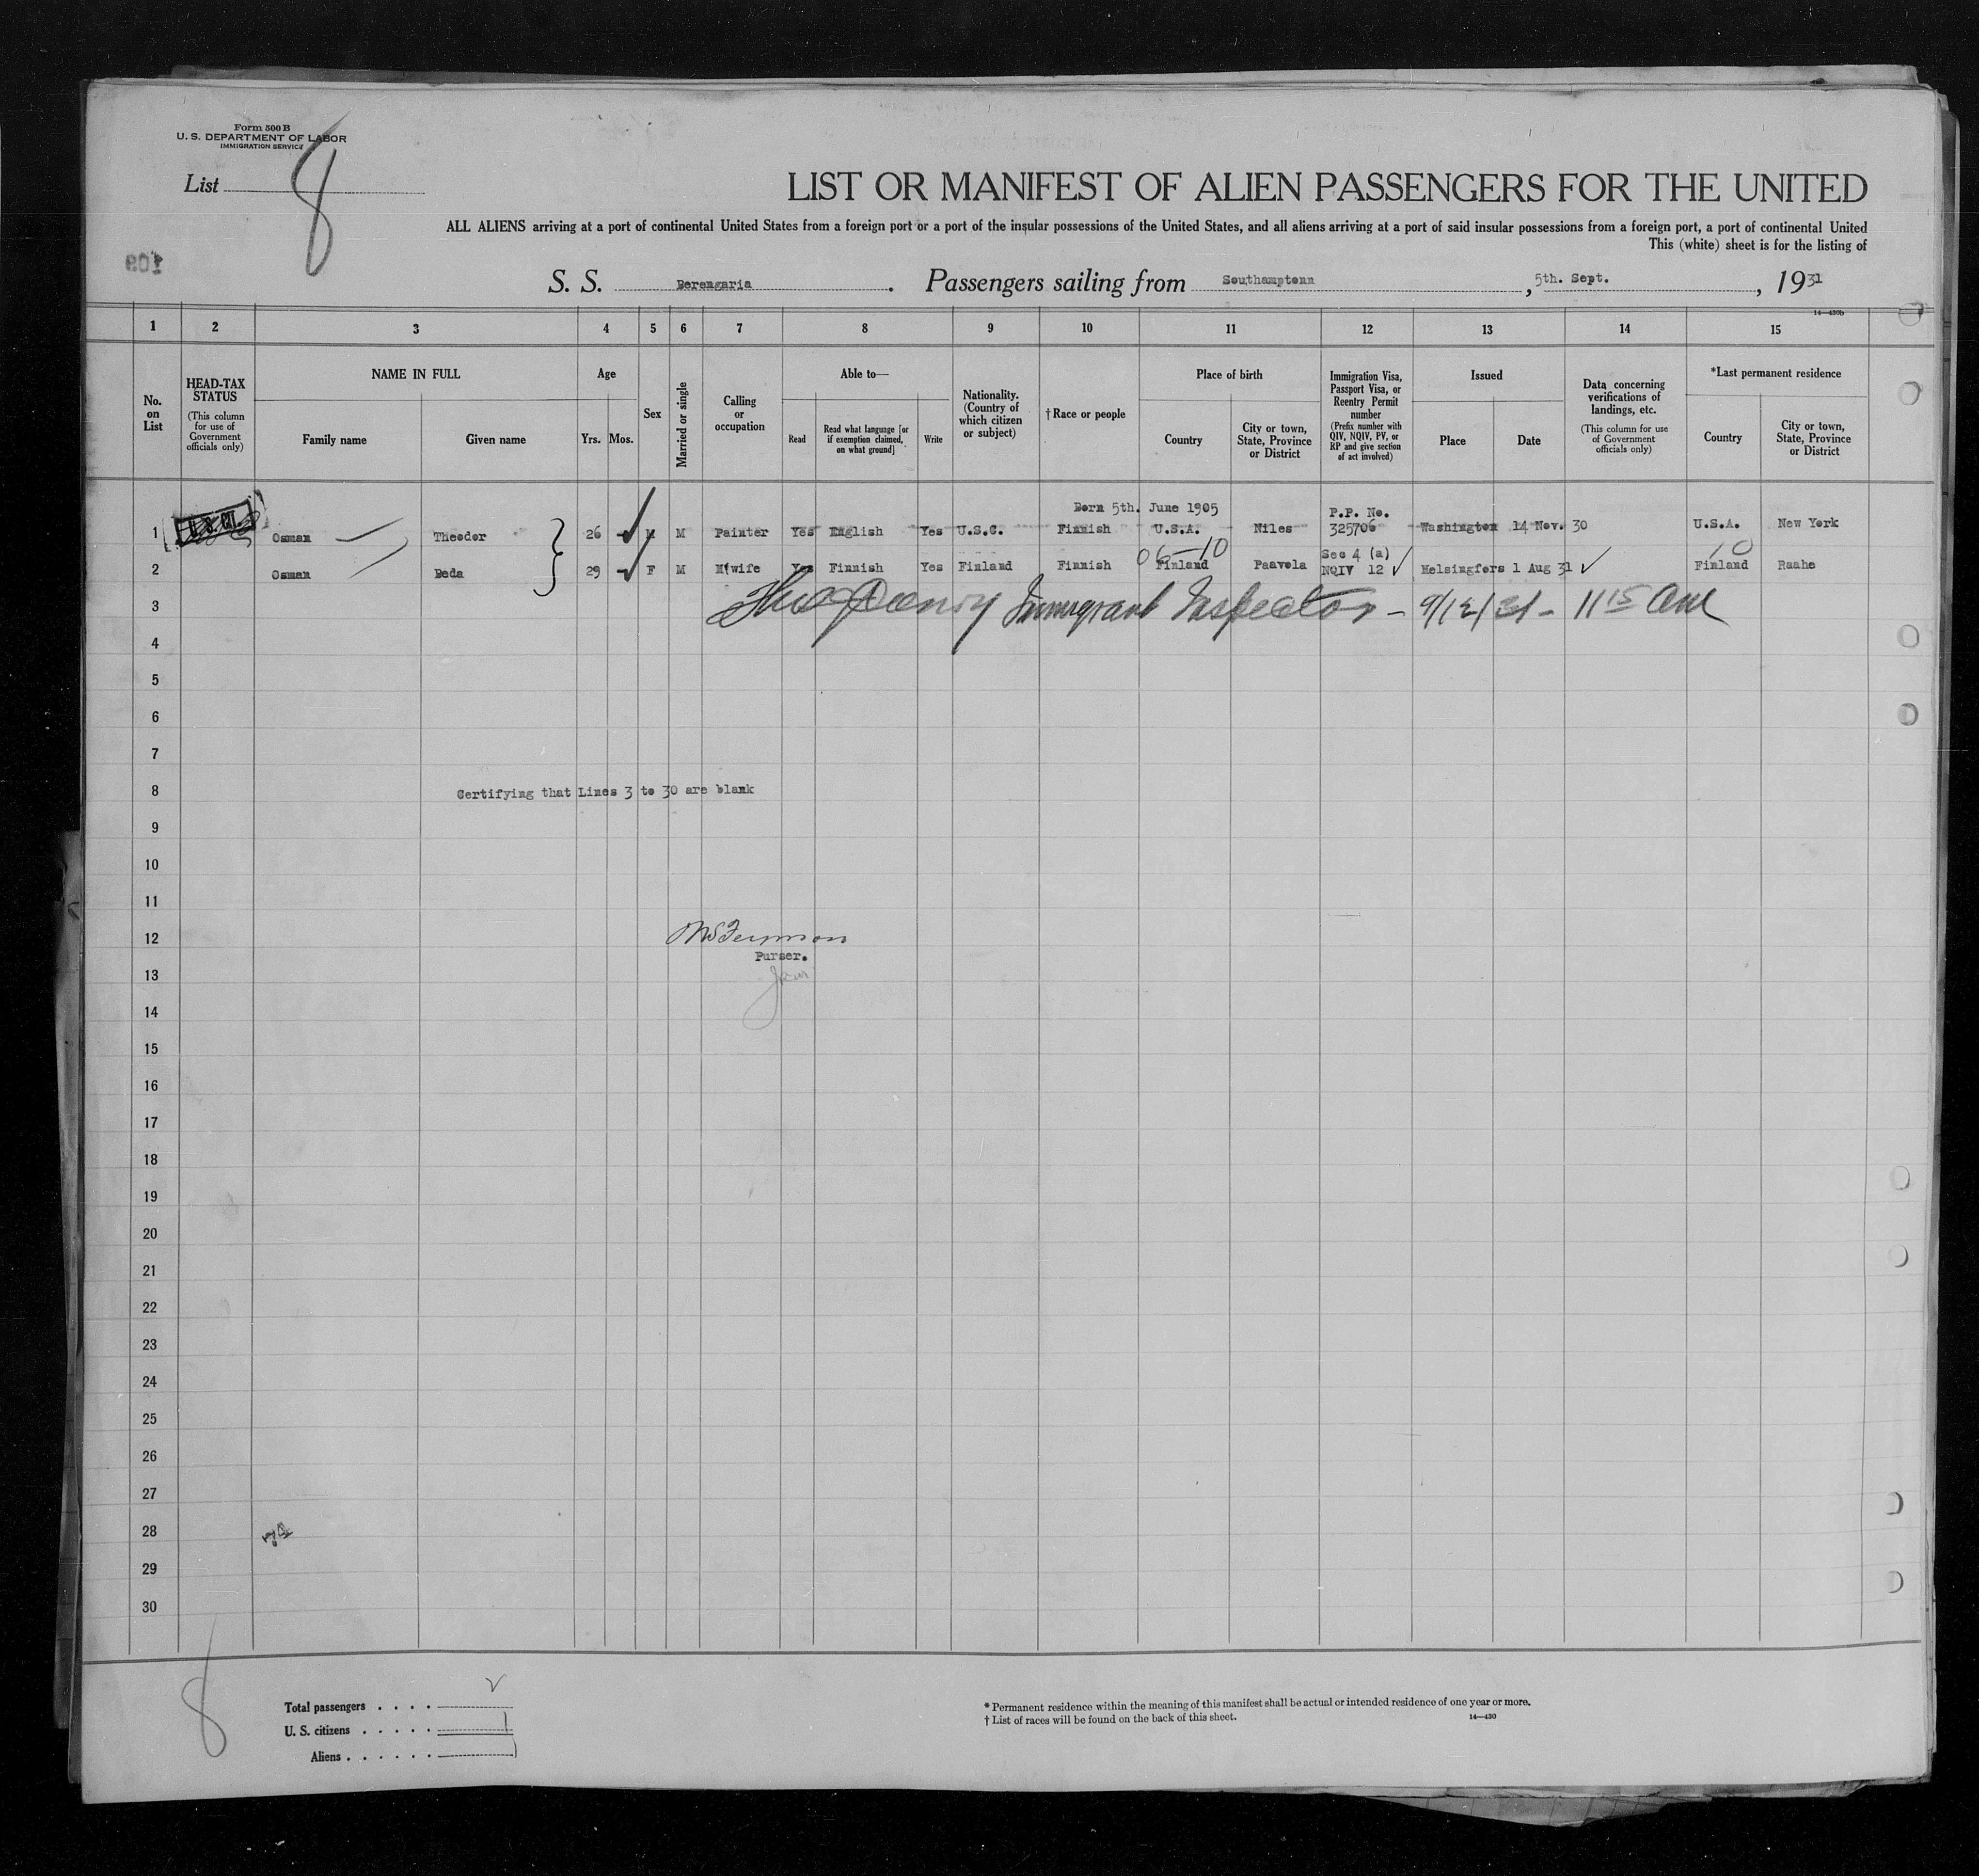 Form 500 B
U. S. DEPARTMENT OF LABOR
IMMIGRATION SERVICE
List 8
LIST OR MANIFEST OF ALIEN PASSENGERS FOR THE UNITED
ALL ALIENS arriving at a port of continental United States from a foreign port or a port of the insular possessions of the United States, and all aliens arriving at a port of said insular possessions from a foreign port, a port of continental United
This (white) sheet is for the listing of
S. S. Berengaria. Passengers sailing from Southamptonn, 5th. Sept., 1931
14—430b
1 2 3 4 5 6 7 8 9 10 11 12 13 14 15
No. on List
HEAD-TAX STATUS
(This column for use of Government officials only)
NAME IN FULL
Family name
Given name
Age
Yrs.
Mos.
Sex
Married or single
Calling or occupation
Able to—
Read
Read what language [or if exemption claimed, on what ground]
Write
Nationality. (Country of which citizen or subject)
† Race or people
Place of birth
Country
City or town, State, Province or District
Immigration Visa, Passport Visa, or Reentry Permit number
(Prefix number with QIV, NQIV, PV, or RP and give section of act involved)
Issued
Place
Date
Data concerning verifications of landings, etc.
(This column for use of Government officials only)
*Last permanent residence
Country
City or town, State, Province or District
Born 5th. June 1905
P.P. No.
1 U. S. CIT. Osman Theodor 26 M M Painter Yes English Yes U.S.C. Finnish U.S.A. Niles 325706 Washington 14 Nov. 30 U.S.A. New York
06-10
Sec 4 (a)
10
2 Osman Beda 29 F M H'wife Yes Finnish Yes Finland Finnish Finland Paavola NQIV 12 Helsingfors 1 Aug 31 Finland Raahe
3 Immigrant Inspector - 9/12/31 - 11 15 am
4
5
6
7
8 Certifying that Lines 3 to 30 are blank
9
10
11
12
Purser.
13
14
15
16
17
18
19
20
21
22
23
24
25
26
27
28
29
30
8
Total passengers . . . . 2
U. S. citizens . . . . . 1
Aliens . . . . . . 1
* Permanent residence within the meaning of this manifest shall be actual or intended residence of one year or more.
† List of races will be found on the back of this sheet.
14—430